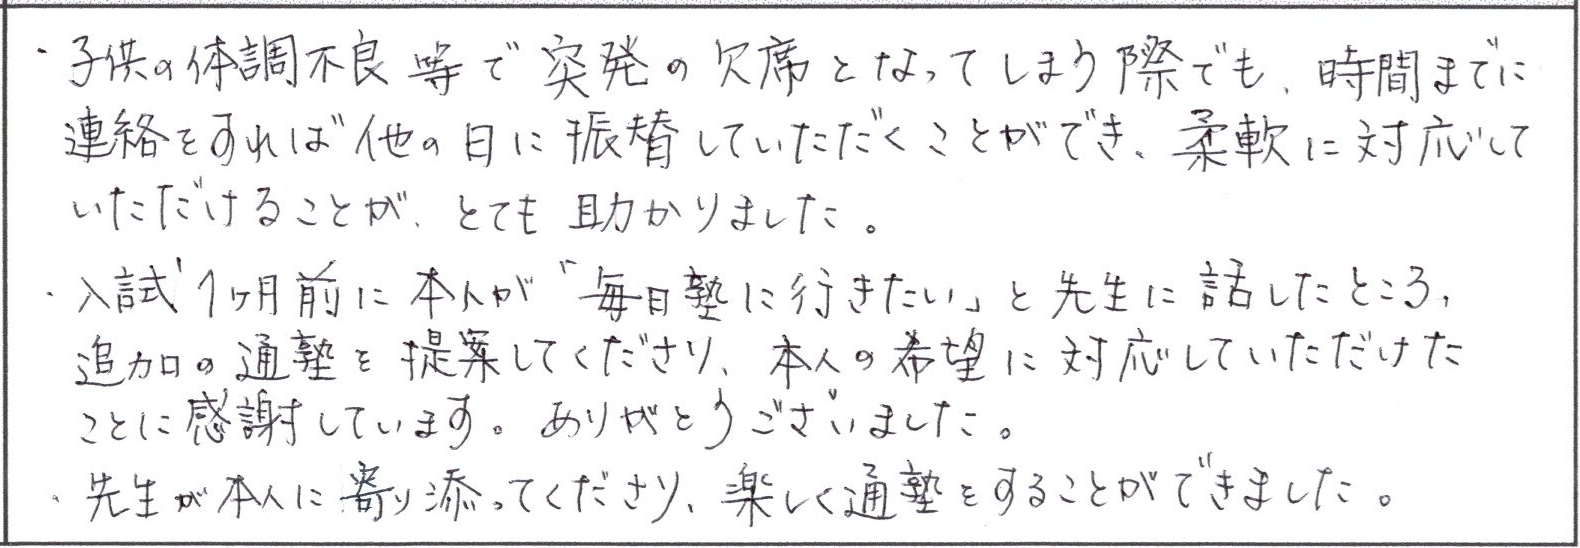 ・子供の体調不良等で突発の欠席となってしまう際でも、時間までに
連絡をすれば他の日に振替していただくことができ、柔軟に対応して
いただけることが、とても助かりました。
・入試1ヶ月前に本人が「毎日塾に行きたい」と先生に話したところ、
追加の通塾を提案してくださり、本人の希望に対応していただけた
ことに感謝しています。ありがとうございました。
・先生が本人に寄り添ってくださり、楽しく通塾をすることができました。